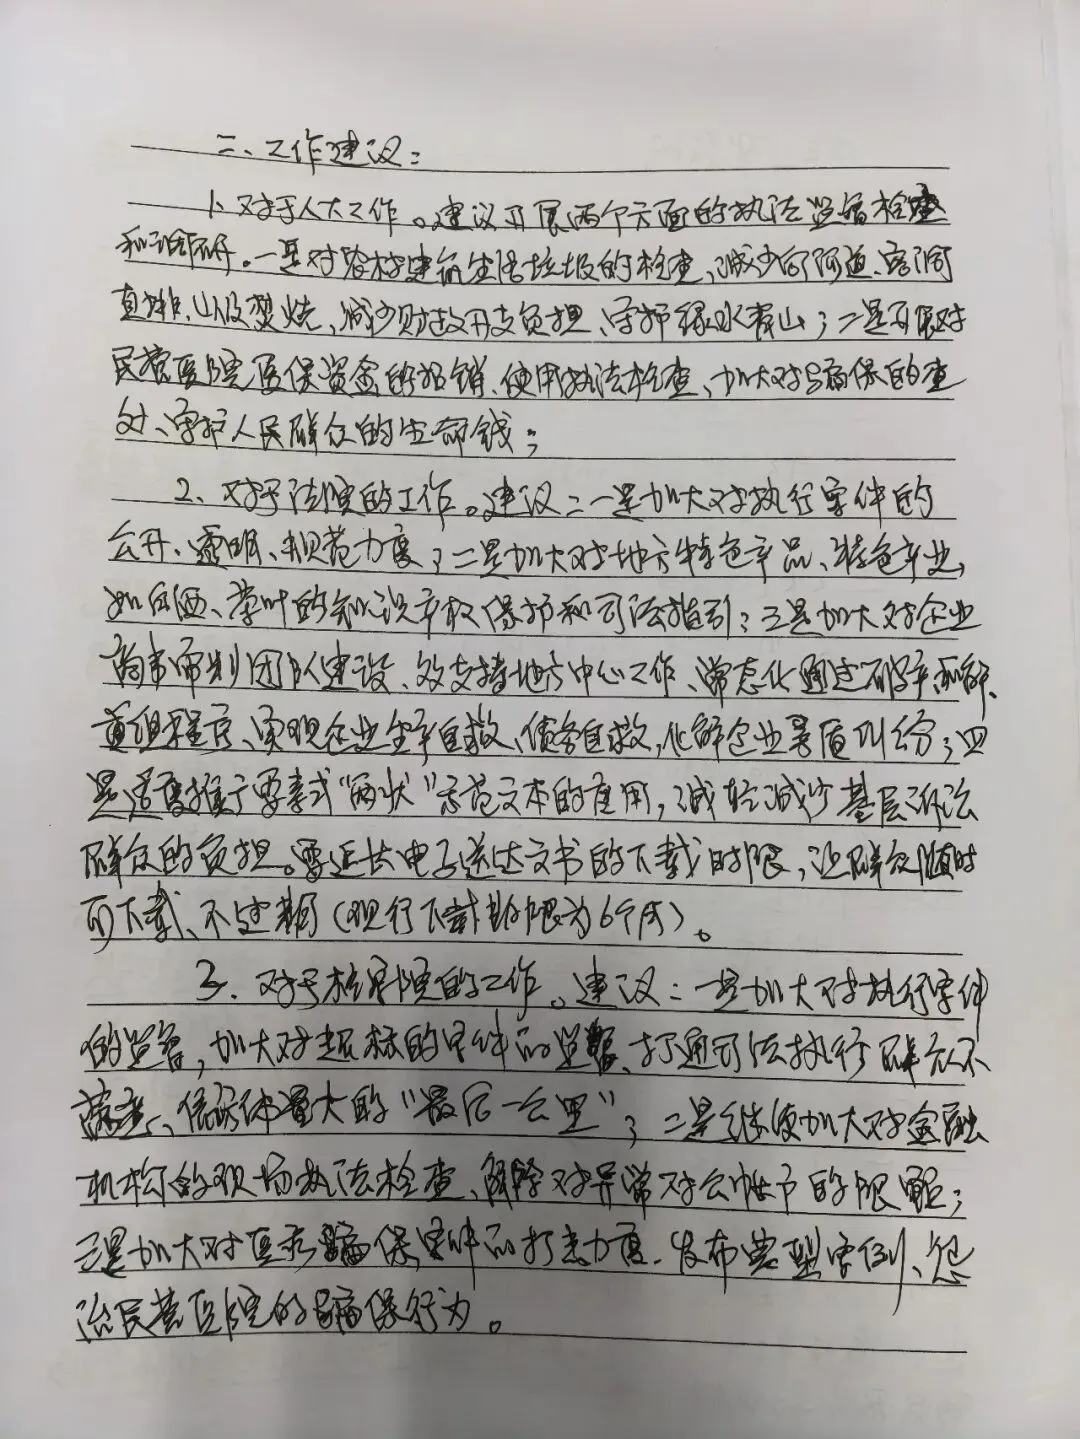 二、工作建议：
1、对于人大工作。建议开展两个方面的执法监督检查
和调研。一是对农村建筑生活垃圾的检查，减少向河道、溶洞
直排、垃圾焚烧，减少财政开支负担、守护绿水青山；二是开展对
民营医院医保资金的报销、使用执法检查、加大对骗保的查
处、守护人民群众的生命钱；
2、对于法院的工作。建议：一是加大对执行案件的
公开、透明、规范力度；二是加大对地方特色产品、特色产业，
如白酒、茶叶的知识产权保护和司法指引；三是加大对企业
审判团队建设、支持地方中心工作、常态化通过破产和解、
重组程序、实现企业生产自救、债务自救，化解企业矛盾纠纷；四
是适度推广要素式“两状”示范文本的应用，减轻减少基层诉讼
群众的负担。要延长电子送达文书的下载时限，让群众随时
可下载、不过期（现行下载期限为6个月）。
3、对于检察院的工作。建议：一是加大对执行案件
的监督，加大对超标的案件的监督、打通司法执行群众不
满意、信访体量大的“最后一公里”；二是继续加大对金融
机构的现场执法检查、解除对异常对公帐户的限额；
三是加大对医疗骗保案件的打击力度、发布典型案例、惩
治民营医院的骗保行为。